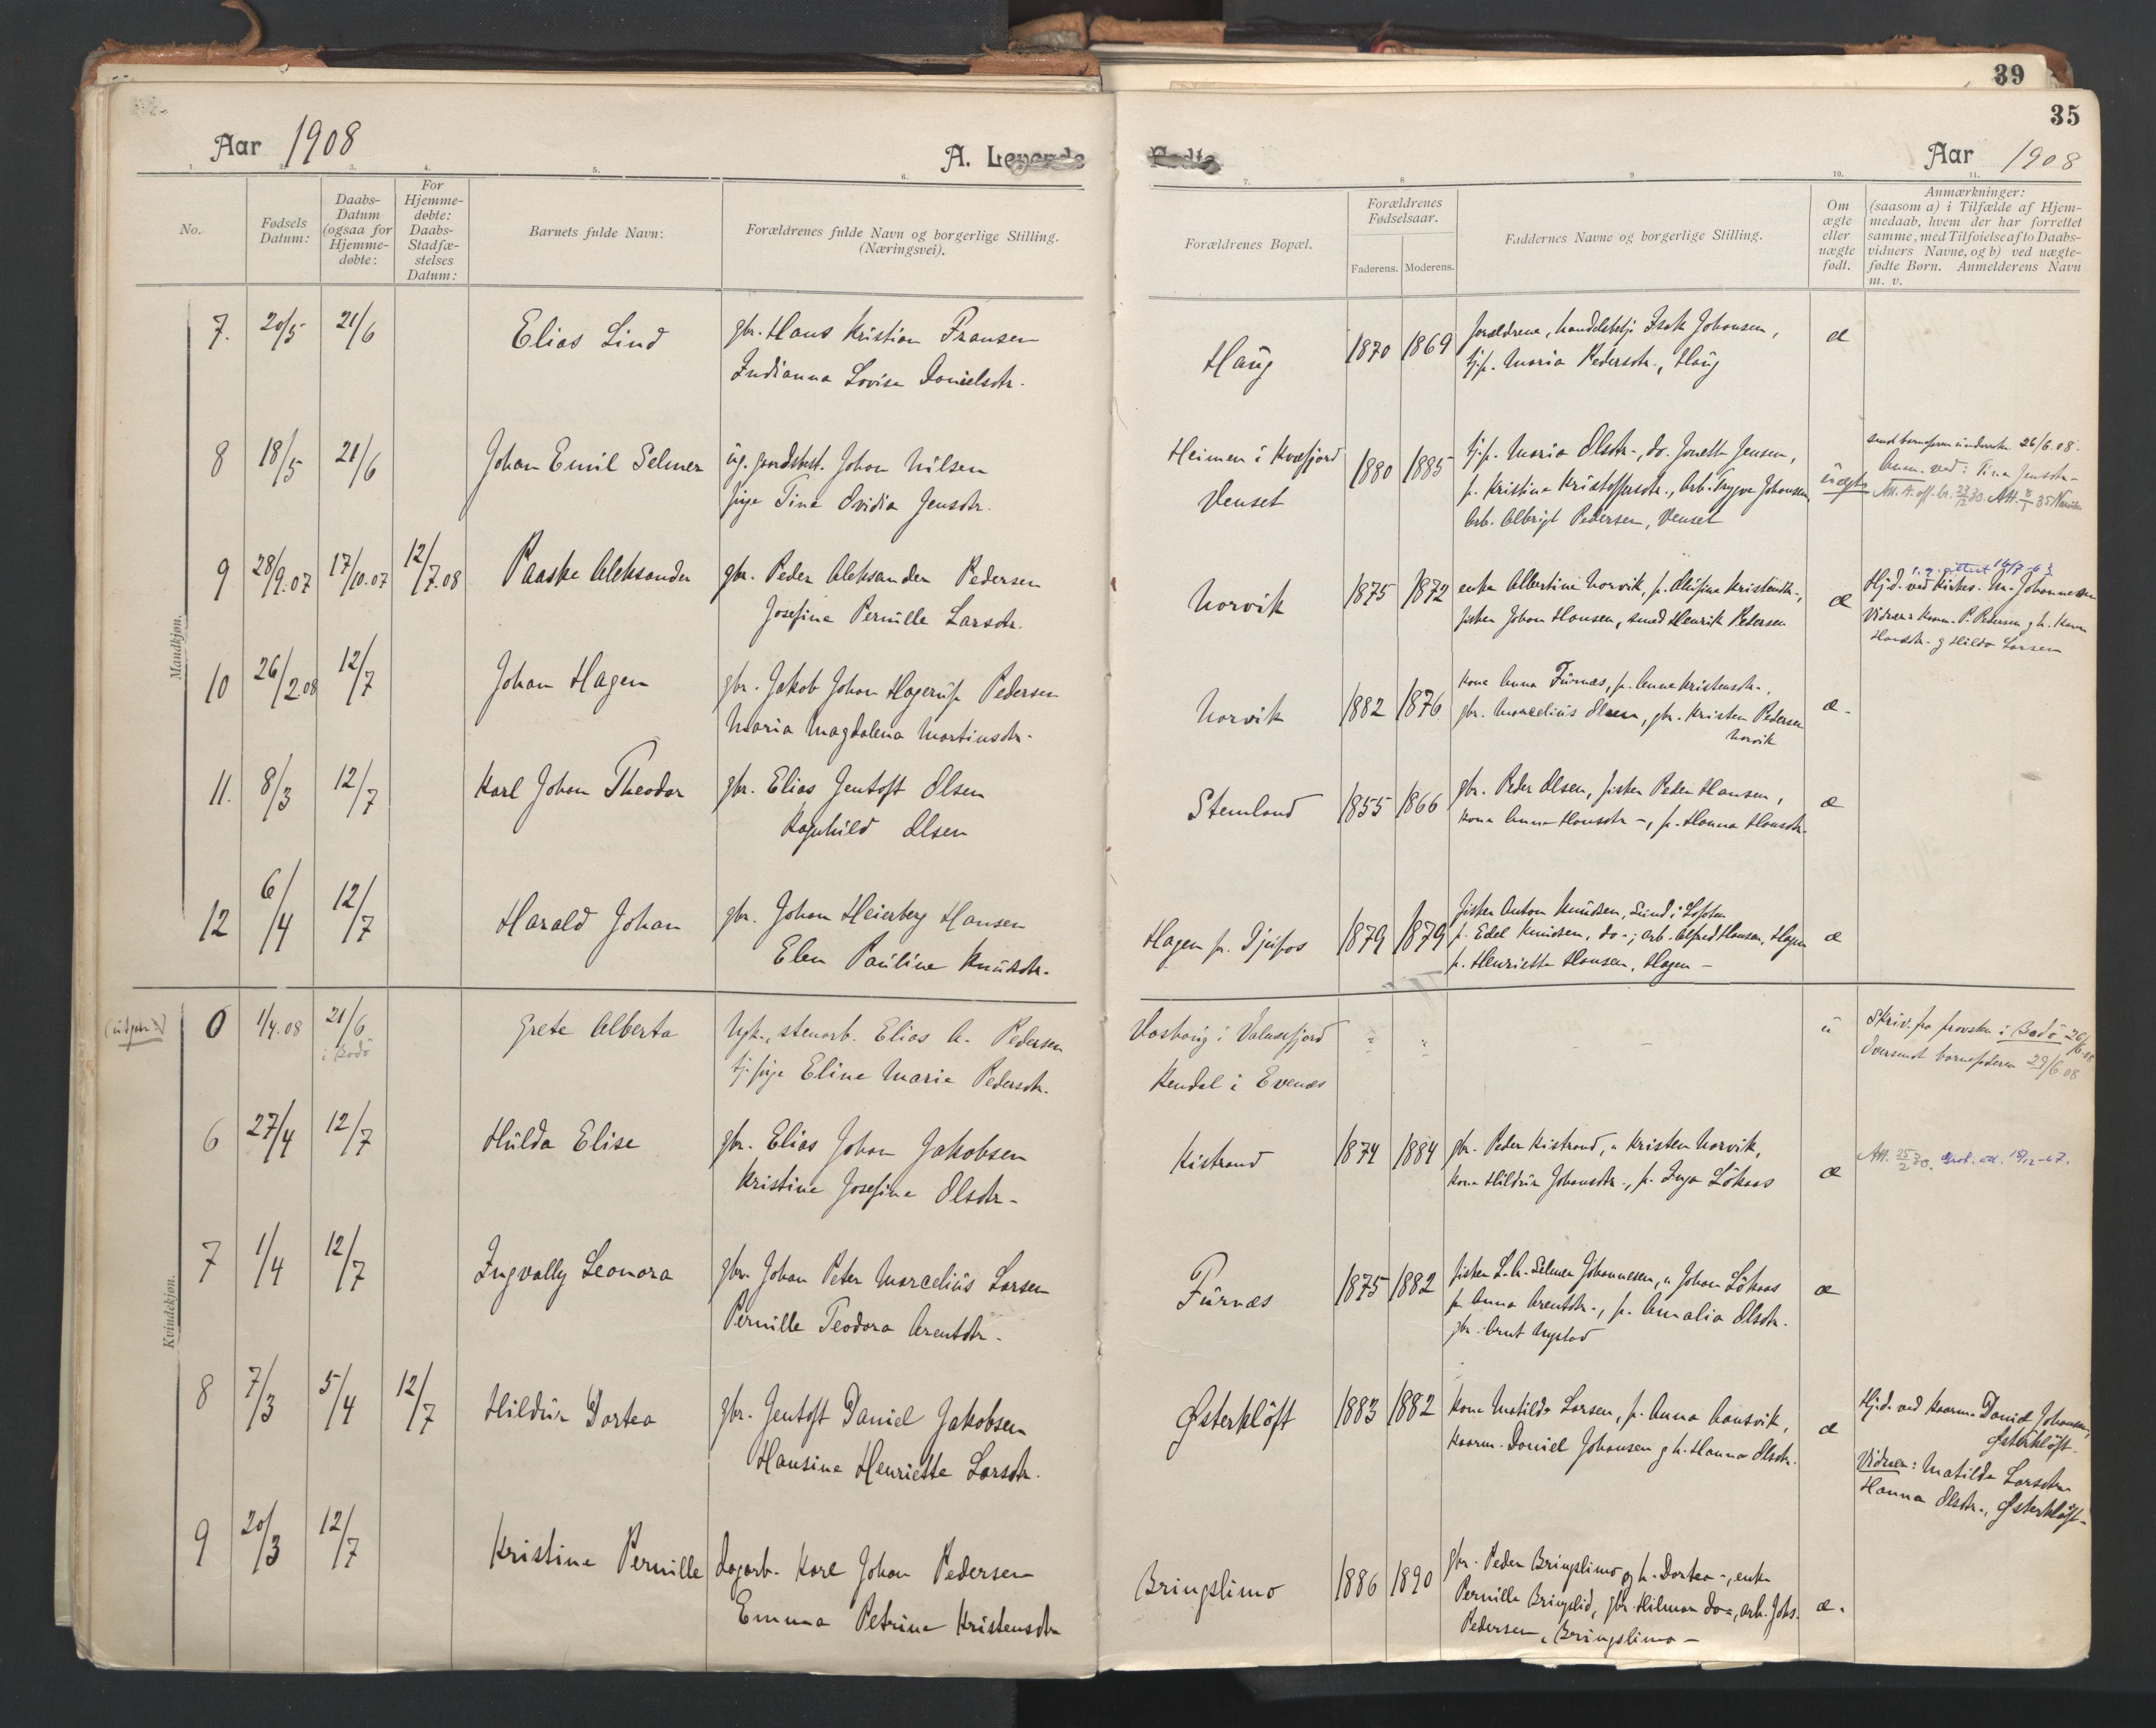 39
35
Aar 1908
A. Levende
Fødte
Aar 1908
1. 2. 3. 4. 5. 6. 7. 8 9 10. 11.
No.
Fødsels
Datum:
Daabs-
Datum
(ogsaa for
Hjemme-
døbte:
For
Hjemme-
døbte:
Daabs-
Stadfæ-
stelses
Datum:
Barnets fulde Navn:
Forældrenes fulde Navn og borgerlige Stilling.
(Næringsvei).
Forældrenes Bopæl.
Forældrenes
Fødselsaar.
Faderens. Moderens.
Faddernes Navne og borgerlige Stilling.
Om
ægte
eller
uægte
født.
Anmærkninger:
(saasom a) i Tilfælde af Hjem-
medaab, hvem der har forrettet
samme, med Tilføielse af to Daabs-
vidners Navne, og b) ved uægte-
fødte Børn. Anmelderens Navn
m. v.
Mandkjøn.
7. 20/5 21/6 Elias Lind gbr. Hans Kristian Fransen
Indianna Lovise Danielsdtr.
Haug 1870 1869 forældrene, handelsbetj. Isak Johansen,
tj.p. Maria Pedersdtr., Haug
æ
8 18/5 21/6 Johan Emil Selmer ug. gaardsbest. Johan Nilsen
pige Tina Ovidia Jensdtr.
Heimen i Kvæfjord
Venset
1880 1885 tj.p. Maria Olsdtr., do. Jonette Jensen,
p. Kristine Kristoffersdtr., Arb. Trygve Johansen,
Arb. Albrigt Pedersen, Venset
uægte
26/6.08.
Anm. ved: Tina Jensdtr.
Att. 23/12 30. Att. 35 Narvik
9 28/9.07 17/10.07 12/7.08 Paaske Aleksander gbr. Peder Aleksander Pedersen
Josefine Pernille Larsdtr.
Norvik 1875 1872 enke Albertine Norvik, p. Kristensdtr.,
fisker Johan Hansen, smed Henrik Pedersen
æ
Hj.d. ved Kirkes. M. Johannessen
Vidner: Kaarm. P. Pedersen g h. Karen
Hansdtr. g Hilda Larsen
10 26/2.08 12/7 Johan Hagen gbr. Jakob Johan Hagerup Pedersen
Maria Magdalena Martinsdtr.
Norvik 1882 1876 Kone Anna Furnæs, p. Anna Kristensdtr.,
gbr. Marcelius Olsen, gbr. Kristen Pedersen
Norvik
æ.
11. 8/3 12/7 Karl Johan Theodor gbr. Elias Jentoft Olsen
Ragnhild Olsen
Stemland 1855 1866 gbr. Peder Olsen, fisker Peder Hansen,
Kone Anna Hansdtr., p. Hanna Hansdtr.
æ
12 6/4 12/7 Harald Johan gbr. Johan Heierberg Hansen
Elen Pauline Knutsdtr.
Hagen pr. Djupos 1879 1879 fisker Anton Knudsen, Sund i Lofoten
p. Edel Knudsen, do-; arb. Alfred Hansen, Hagen
p. Henriette Hansen, Hagen -
æ
Kvindekjøn.
0 1/4.08 21/6
i Bodö
Grete Alberta Ugk., stenarb. Elias A. Pedersen
tj. pige Eline Marie Pedersdtr.
i Valnesfjord
Kendal i Evenes
" "
u
Skriv. fra provsten i Bodö 26/6.08
Oversendt barnefaderen 29/6.08
6 27/4 12/7 Hulda Elise gbr. Elias Johan Jakobsen
Kristine Josefine Olsdtr.
Kistrand 1874 1884 gbr. Peder Kistrand, " Kristen Norvik,
Kone Hildur Johansdtr., p. Inga Lökaas
æ
Att. 25/2 30.
7 1/4 12/7 Ingvally Leonora gbr. Johan Peter Marcelius Larsen
Pernille Teodora Arentsdtr.
Furnæs 1875 1882 fisker L. A. Selmer Johannesen, " Johan Lökaas
p. Anna Arentsdtr., p. Amalia Olsdtr.
gbr. Arnt Nystad
æ
8 7/3 5/4 12/7 Hildur Dortea gbr. Jentoft Daniel Jakobsen
Hansine Henriette Larsdtr.
Østerklöft 1883 1882 Kone Matilde Larsen, p. Anna Aansvik,
Kaarm. Daniel Johansen g h. Hanna Olsdtr.
æ
Hj.d. ved Kaarm. Daniel Johansen,
Østerklöft.
Vidner: Matilde Larsdtr.
Hanna Olsdtr., Østerklöft.
9 20/3 12/7 Kristine Pernille dagarb. Karl Johan Pedersen
Emma Petrine Kristensdtr
Bringslimo 1886 1890 gbr. Peder Bringslimo og h. Dortea-, enke
Pernille Bringslid, gbr. Hilmar do-, arb. Johs.
Pedersen, Bringslimo -
æ.